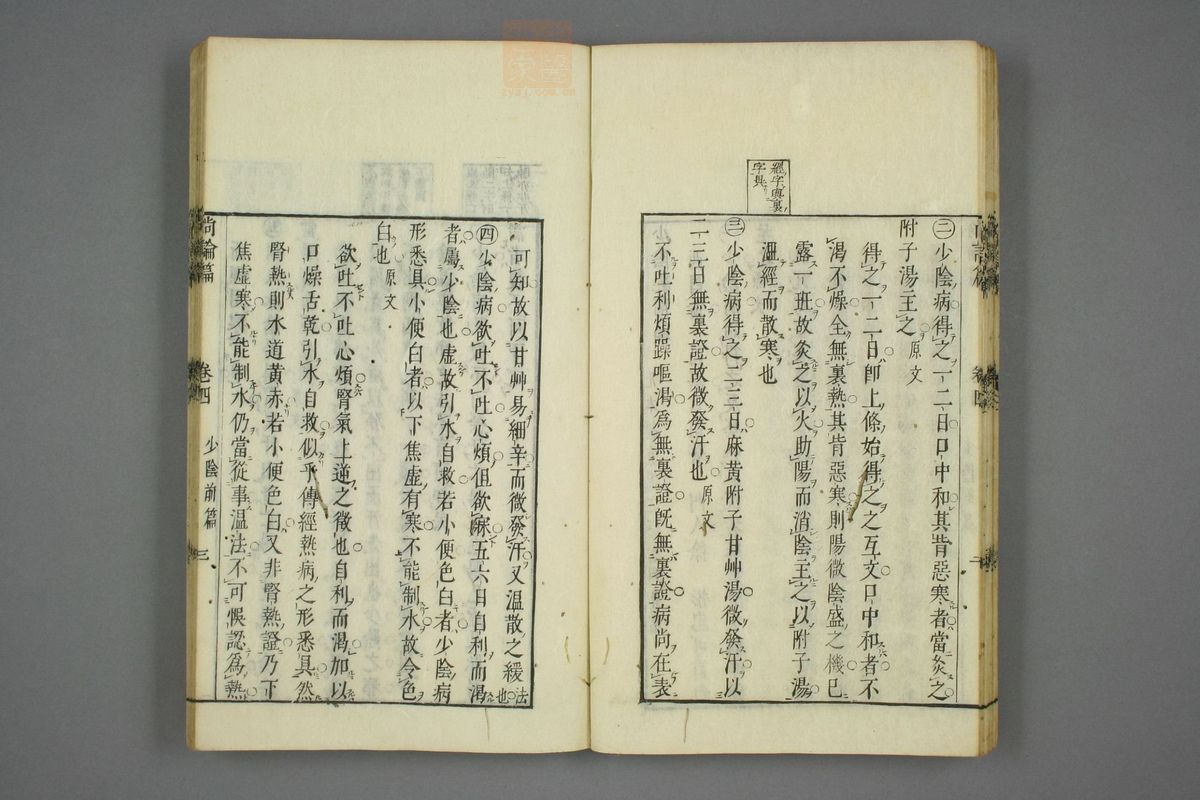 ㊁少陰病得之一二日口中和其背惡寒者當灸之
附子湯主之 原文
得之一二日卽上條始得之之互文口中和者不
渴不燥全無裏熱其背惡寒則陽微陰盛之機已
露一班故灸之以火助陽而消陰主之以附子湯
溫經而散寒也
㊂少陰病得之二三日麻黃附子甘艸湯微發汗以
二三日無裏證故微發汗也 原文
不吐利煩躁嘔渴爲無裏證旣無裏證病尚在表
經字與裏
字具
可知故以甘艸易細辛而微發汗又溫散之緩法也
㊃少陰病欲吐不吐心煩但欲寐五六日自利而渴
者屬少陰也虛故引水自救若小便色白者少陰病
形悉具小便白者以下焦虛有寒不能制水故令色
白也 原文
欲吐不吐心煩腎氣上逆之徵也自利而渴加以
口燥舌乾引水自救似乎傳經熱病之形悉具然
腎熱則水道黃赤若小便色白又非腎熱證乃下
焦虛寒不能制水仍當從事溫法不可悞認爲熱
尚論篇 卷四 少陰前篇 三